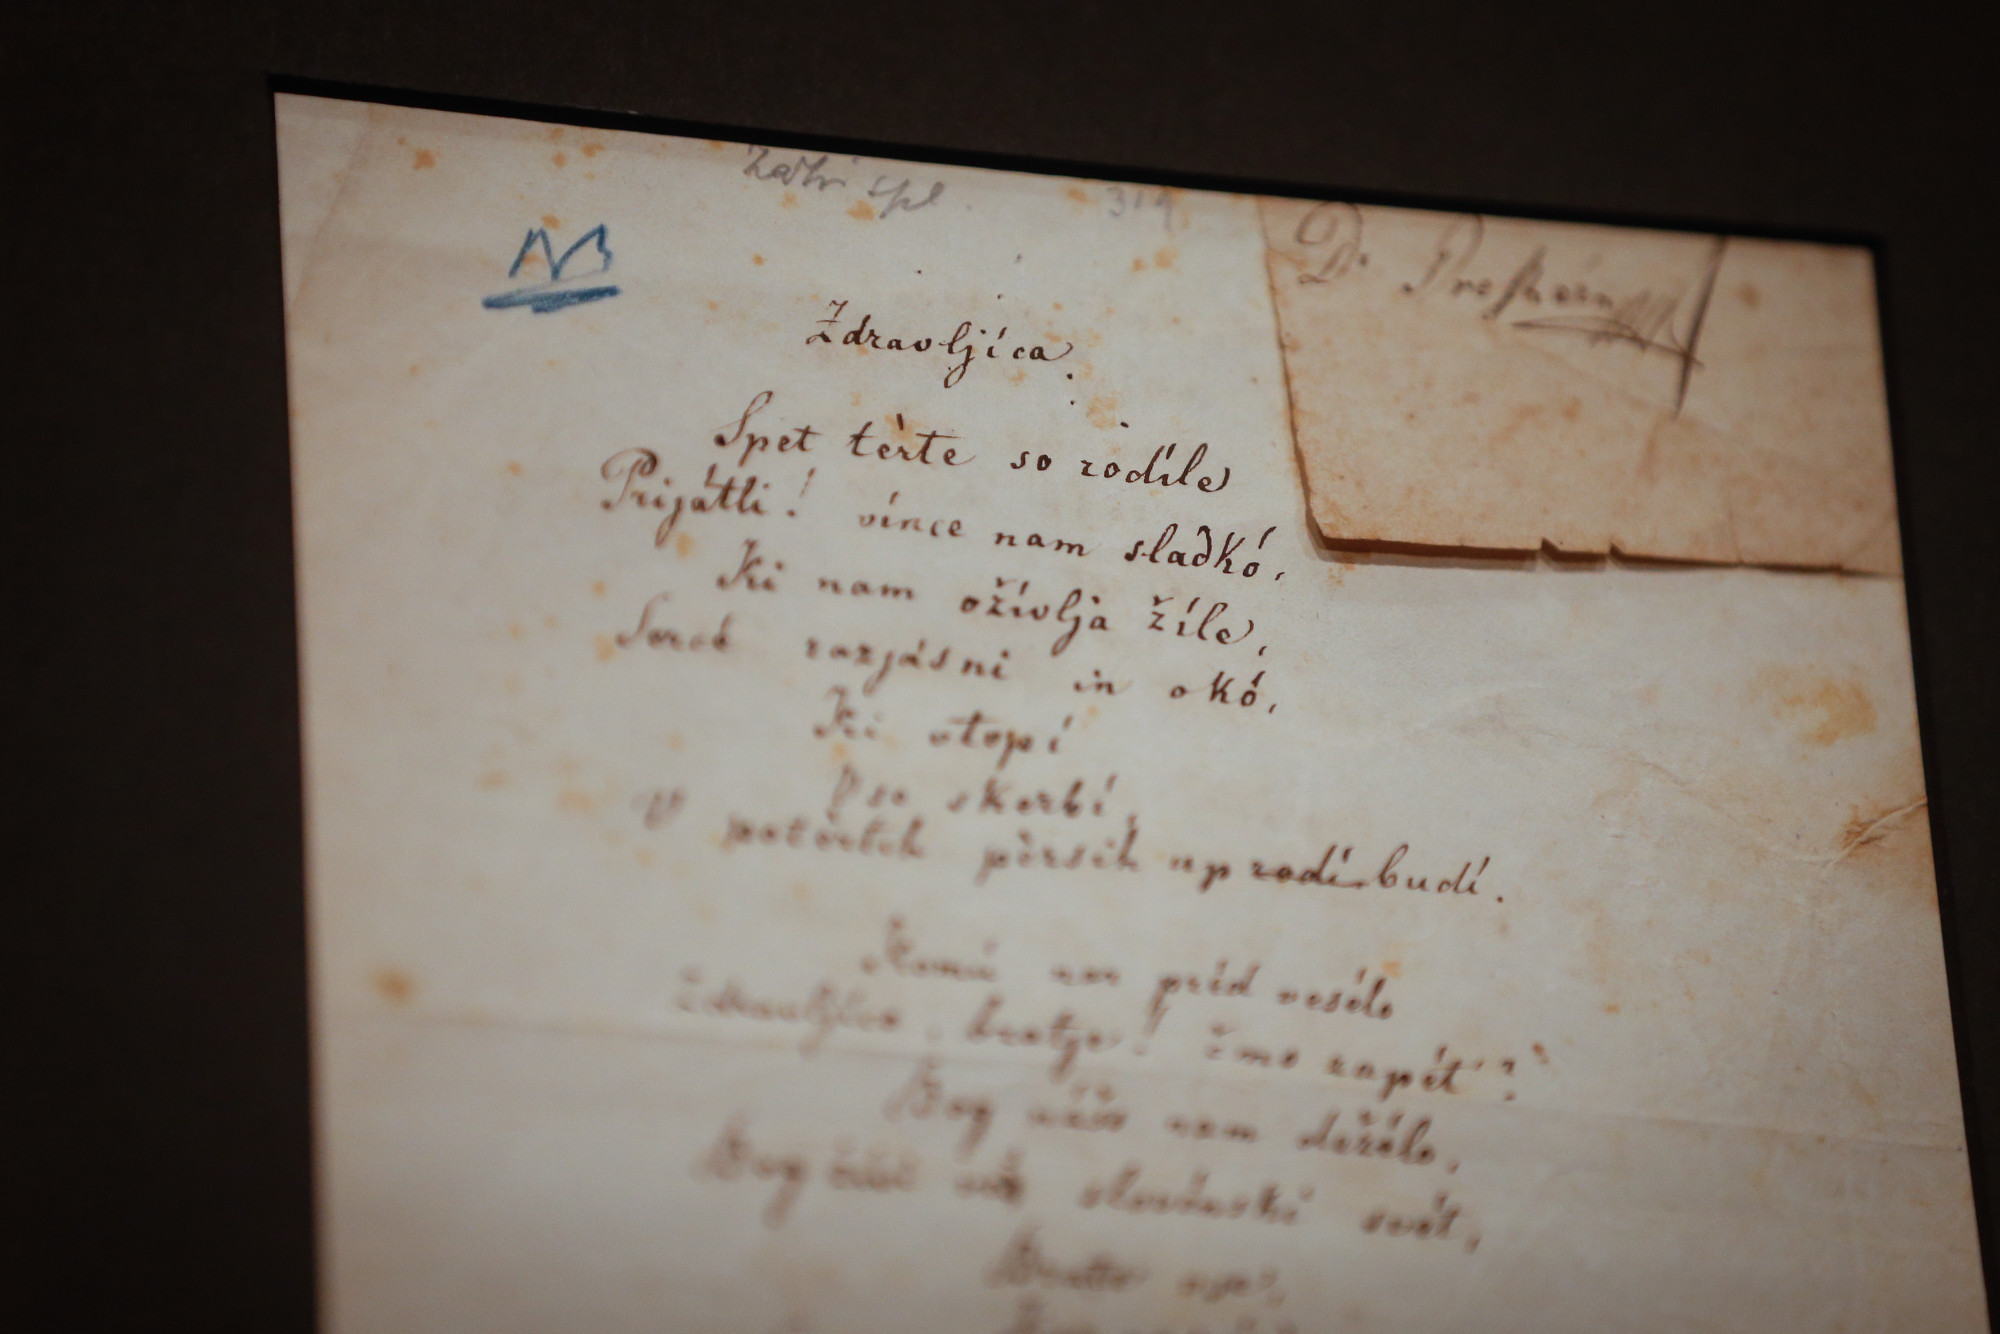 NB
319
Dr Prešhérn
Zdravljíca.
Spet tèrte so rodíle
Prijátli! vínce nam sladkó,
Ki nam ožívlja žíle,
Sercé razjásni in okó,
Ki vtopí
Vse skerbí,
V potèrtih pèrsih up rodí budí.
Komú nar préd vesélo
Zdravljíco, bratje! čmo zapét'?
Bog nášo nam dežélo,
Bog živi ves slovénski svét,
Bratte vse,